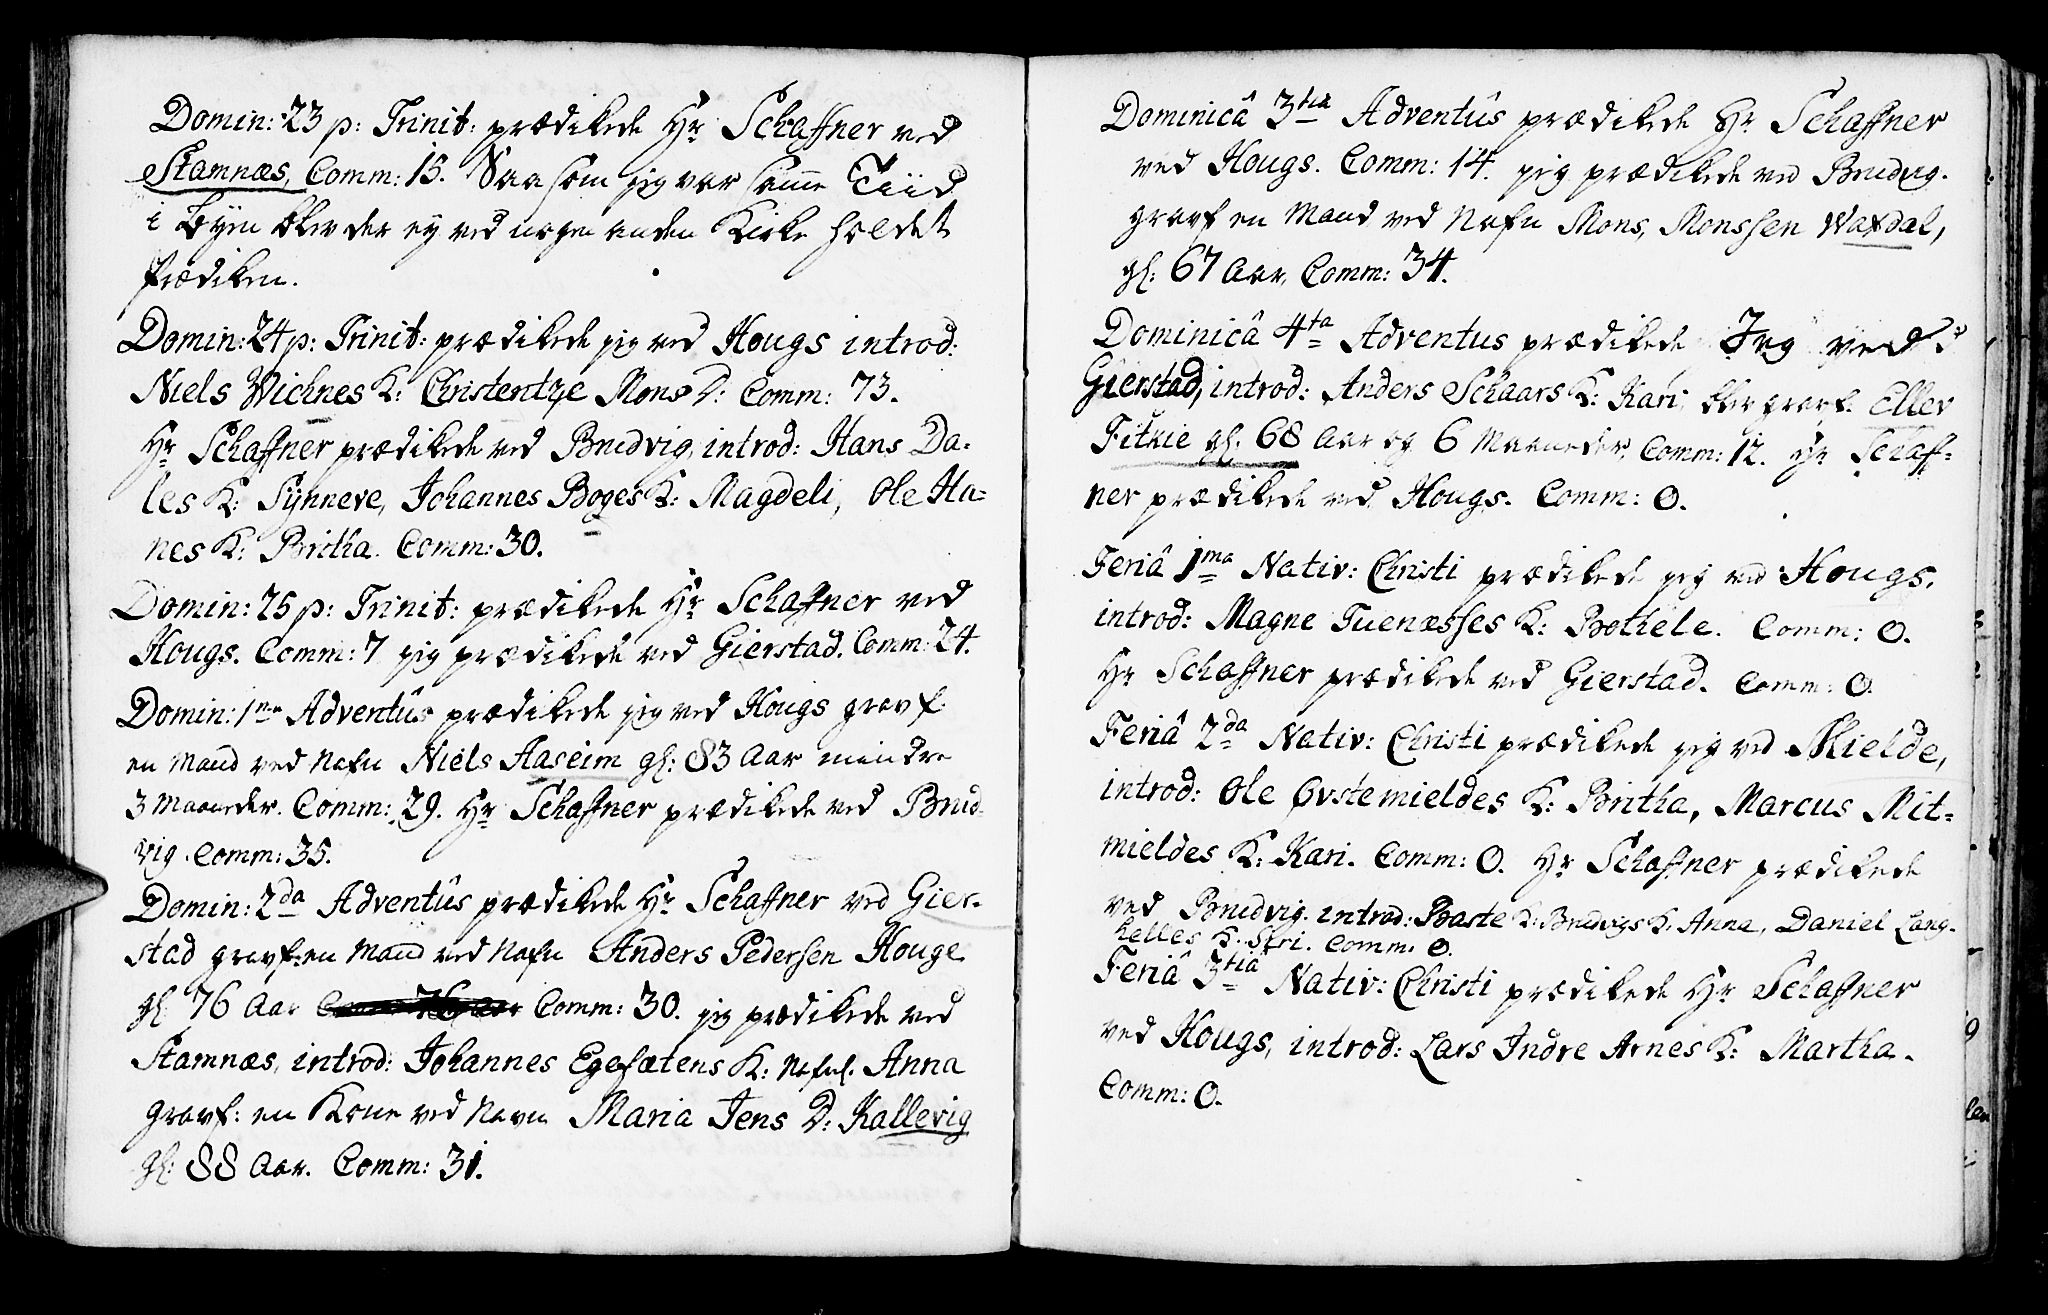 Domin: 23 p: Trinit: prædikede Hr Schaffner ved
Stamnæs, Comm: 15. Saasom jeg var samme Tiid
i Byen blev der ey ved nogen anden Kirke holdet
Prædiken.
Domin: 24 p: Trinit: prædikede jeg ved Hougs introd:
Niels Wichnes K: Christentze Mons D: Comm: 73.
Hr Schaffner prædikede ved Brudvig, introd: Hans Da-
les K: Synneve, Johannes Boges K: Magdeli, Ole Ha-
nes K: Britha. Comm: 30.
Domin: 25 p: Trinit: prædikede Hr Schaffner ved
Hougs. Comm: 7 jeg prædikede ved Gierstad. Comm: 24.
Domin: 1ma Adventûs prædikede jeg ved Hougs gravf.
en Mand ved Nafn Niels Aaseim gl: 83 Aar mindre
3 Maaneder. Comm: 29. Hr Schaffner prædikede ved Brud-
vig. Comm: 35.
Domin: 2da Adventûs prædikede Hr Schaffner ved Gier-
stad gravf: en Mand ved Nafn Anders Pedersen Houge
gl: 76 Aar Comm: 30. jeg prædikede ved
Stamnæs, introd: Johannes Egesætens K: Nafnl. Anna
gravf: en Kone ved Navn Maria Jens D: Kallevig
gl: 88 Aar. Comm: 31.
Dominicâ 3tia Adventûs prædikede Hr Schaffner
ved Hougs. Comm: 14. jeg prædikede ved Brudvig.
gravf en Mand ved Nafn Mons, Monssen Waxdal,
gl: 67 Aar, Comm: 34.
Dominicâ 4ta Adventus prædikede Jeg ved
Gierstad, introd: Anders Schaars K: Kari, blev gravf. Ellev
Fitkie gl: 68 Aar og 6 Maaneder, Comm: 12. Hr Schaff-
ner prædikede ved Hougs. Comm: 0.
Feriâ 1ma Nativ: Christi prædikede jeg ved Hougs.
introd: Magne Tuenæsses K: Bothele. Comm: 0.
Hr Schaffner prædikede ved Gierstad. Comm: 0.
Feriâ 2da Nativ: Christi prædikede jeg ved Mielde,
introd: Ole Øvstemieldes K: Britha, Marcus Mit-
mieldes K: Kari. Comm: 0. Hr Schaffner prædikede
ved Brudvig. introd: Baste Brudvigs K. Anna, Daniel Lang-
helles K. Siri. Comm: 0.
Feriâ 3tiâ Nativ: Christi prædikede Hr Schaffner
ved Hougs, introd: Lars Indre Arnes K: Martha.
Comm: 0.